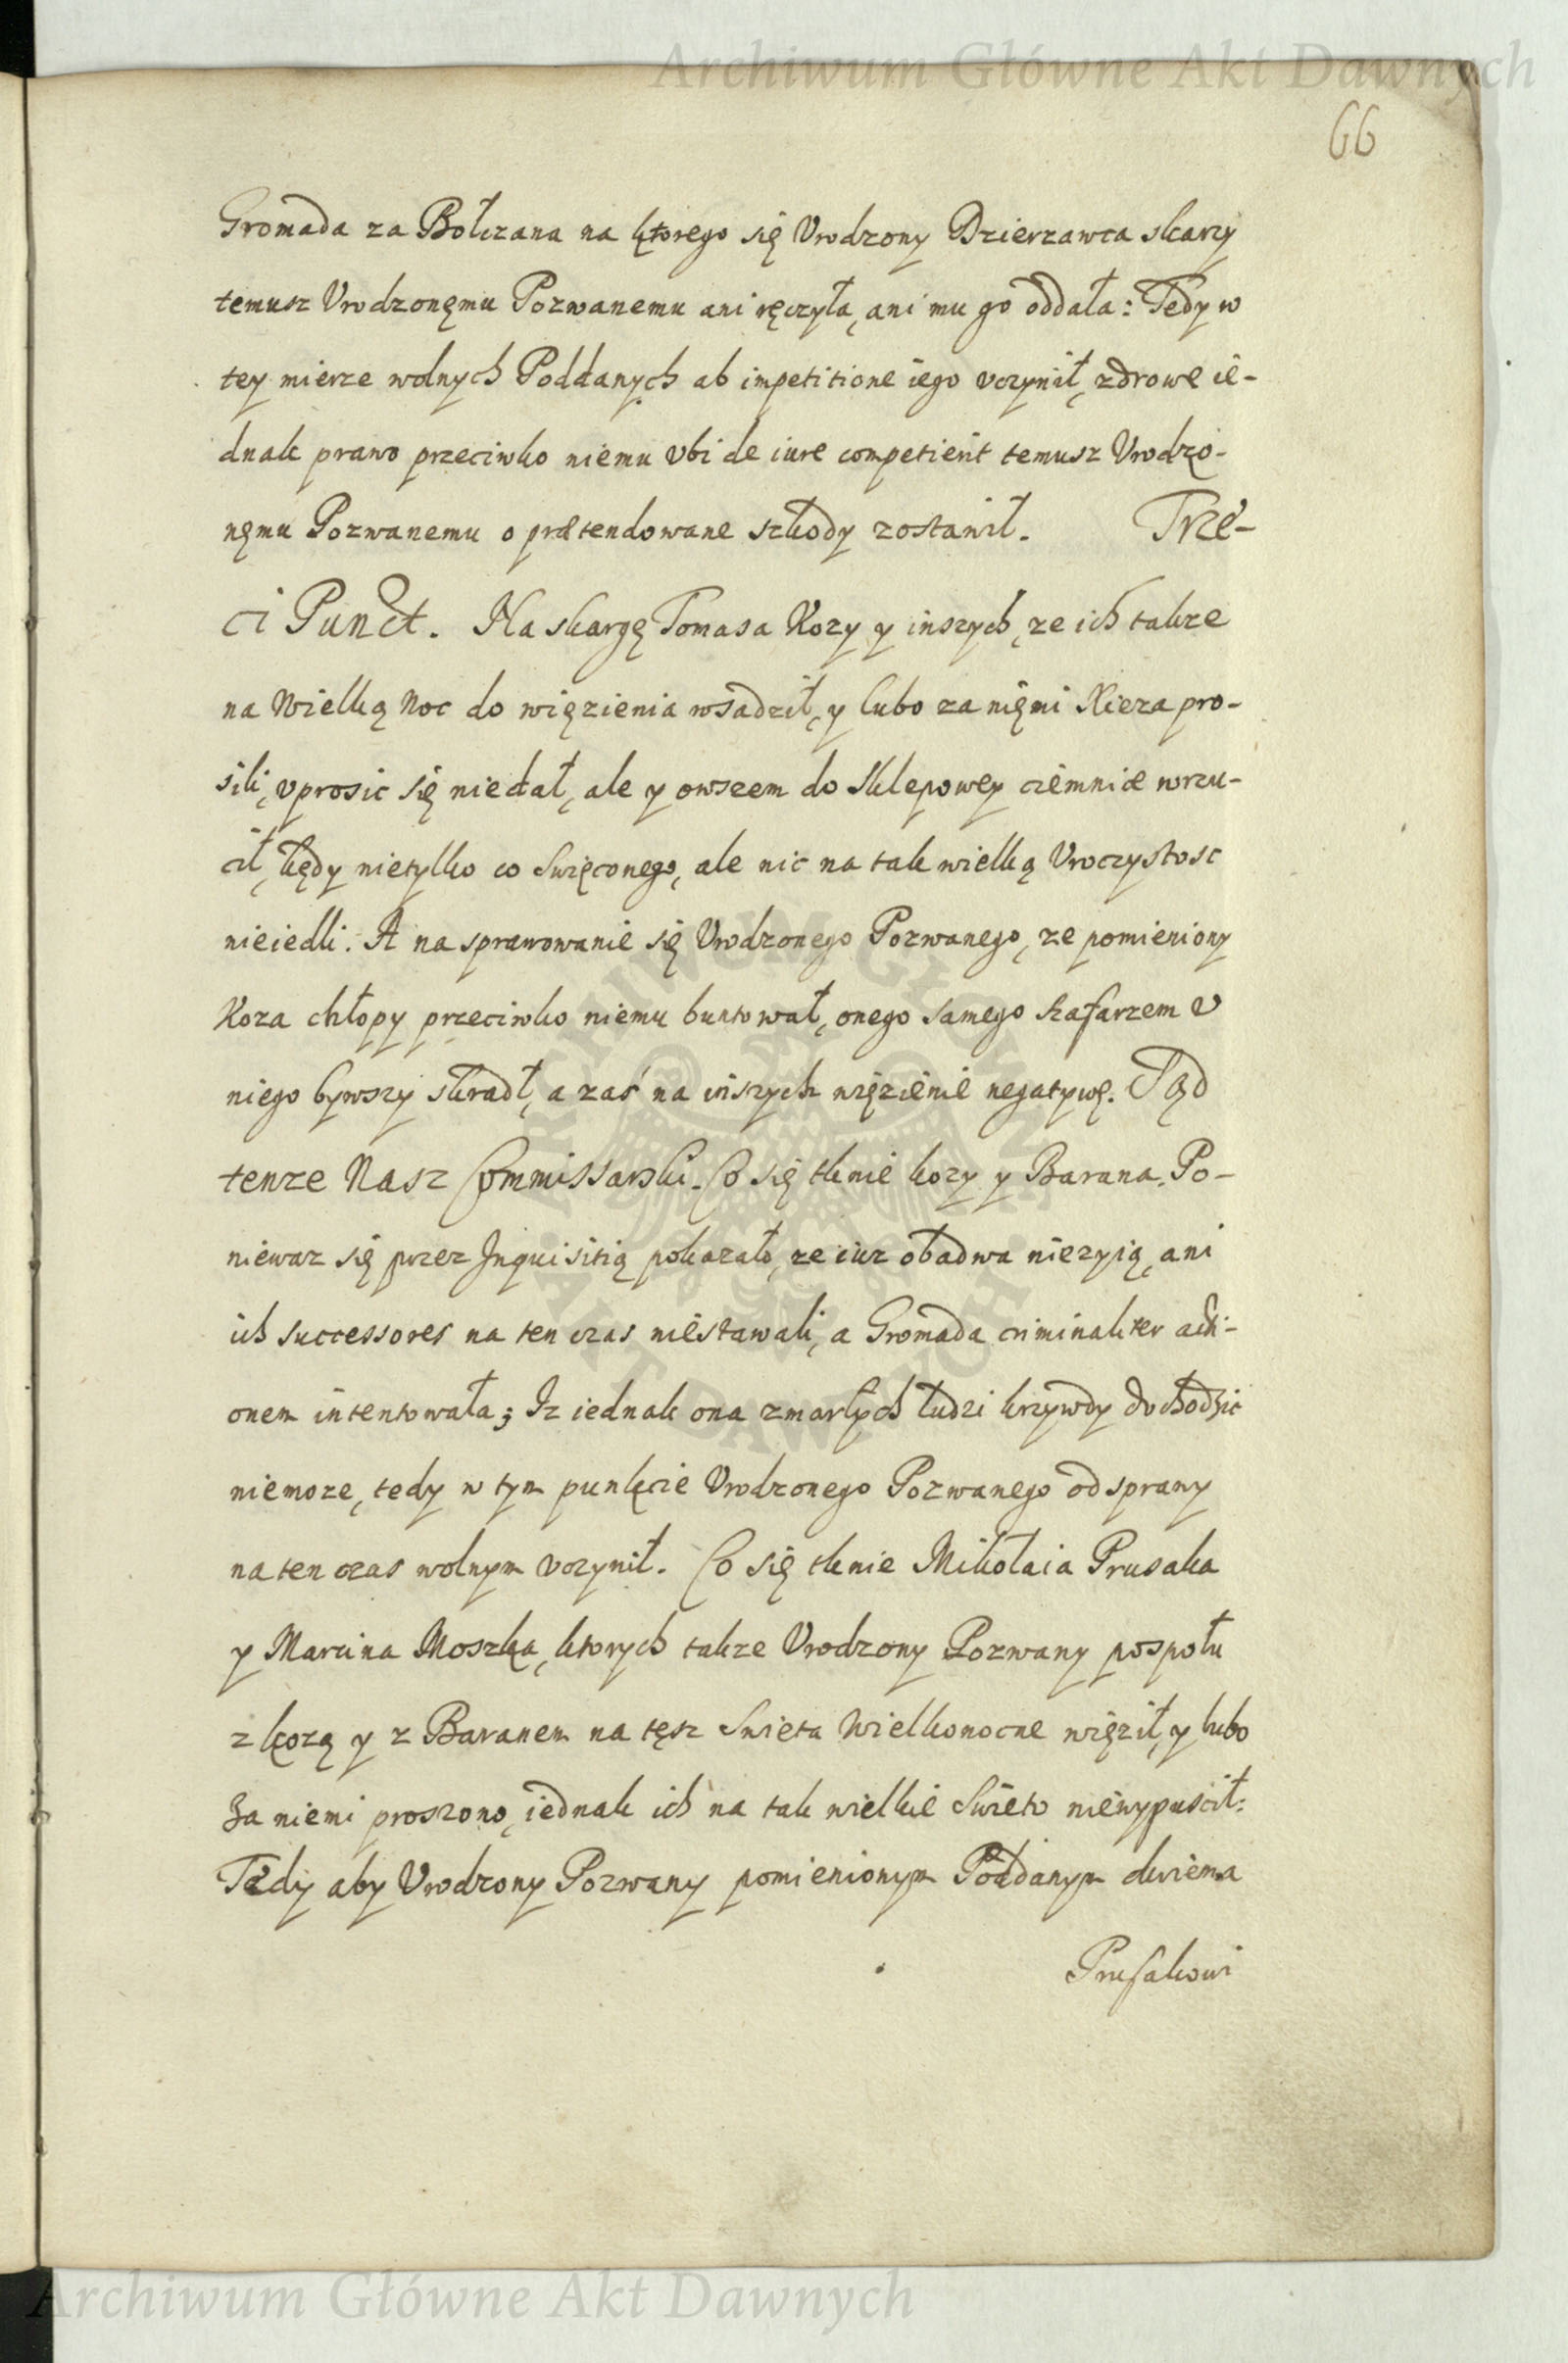 Archiwum Główne Akt Dawnych
66
Gromada za Bołczana na ktorego się Vrodzony Dzierzawca skarzy
temusz Vrodzonęmu Pozwanemu ani ręczyła, ani mu go oddała: Tedy w
tey mierze wolnych Poddanych ab impetitione iego vczynił, zdrowe ie-
dnak prawo przeciwko niemu vbi de iure competierit temusz Vrodzo-
nęmu Pozwanemu o prætendowane szkody zostawił. Trze-
ci Punct. Na skargę Tomasa Kozy y inszych, ze ich takze
na Wielką Noc do więzienia wsadził, y lubo za nięmi Xieza pro-
sili, vprosic się niedał, ale y owszem do Sklepowey ciemnice wrzu-
cił, kędy nietylko co Swięconego, ale nic na tak wielką Vroczystosc
nieiedli. A na sprawowanie się Vrodzonego Pozwanego, ze pomieniony
Koza chłopy przeciwko niemu buntował, onego samego szafarzem v
niego bywszy skradł, a zaś na inszych więzienie negatywę. Sąd
tenze Nasz Commissarski. Co się tknie kozy y Barana. Po-
niewaz się przez Inquisitią pokazało, ze iuz obadwa niezyią, ani
ich successores na ten czas niestawali, a Gromada criminaliter acti-
onem intentowała; Iz iednak ona zmarłych ludzi krzywdy dochodzic
niemoze, tedy w tym punkcie Vrodzonego Pozwanego od sprawy
na ten czas wolnym vczynił. Co się tknie Mikołaia Prusaka
y Marcina Moszka, ktorych takze Vrodzony Pozwany pospołu
z kozą y z Baranem na tęsz Swieta Wielkonocne więził, y lubo
za niemi proszono, iednak ich na tak wielkie Swieto niewypuscił:
Tedy aby Vrodzony Pozwany pomienionym Poddanym dwiema
Prusakowi
ARCHIWUM GŁÓWNE AKT DAWNYCH
Archiwum Główne Akt Dawnych